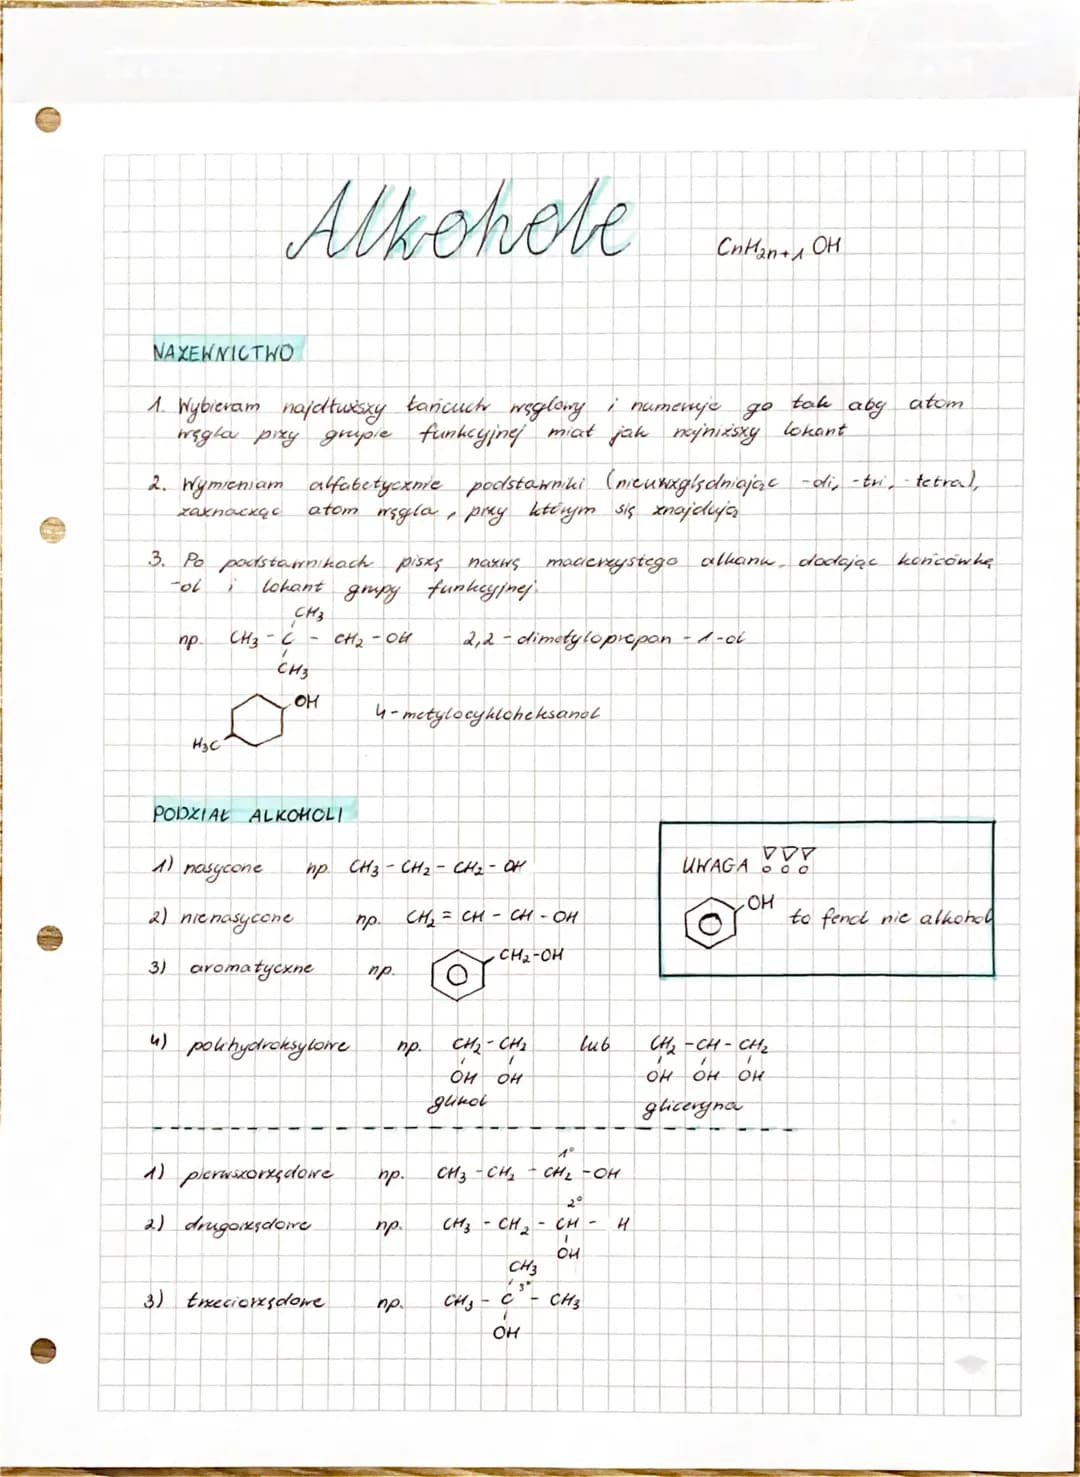 Alkohole CnH2n+1 OH
NAZEWNICTWO
1. Wybieram najdłuższy łańcuch węglowy i numeruje go tak aby atom
węgla przy grupie funkcyjnej miał jak najniższy lokant
2. Wymieniam alfabetycznie podstawniki (nieuwzględniając -di, -tri, -tetra),
zaznacząc atom węgla, przy którym się znajdują
3. Po podstawnikach piszę nazwę macierzystego alkanu, dodając końcówkę
-ol i lokant grupy funkcyjnej.
CH3
np. CH3 - C - CH2 - OH 2,2 - dimetylopropan - 1-ol
CH3
OH
4-metylocykloheksanol
H3C
PODZIAŁ ALKOHOLI
1) nasycone np. CH3 - CH2 - CH2 - OH
2) nienasycone np. CH2 = CH - CH - OH
3) aromatyczne np. CH2-OH
UWAGA !!!
OH
to fenol nie alkohol
4) polihydroksylowe np. CH2 - CH2 lub CH2 - CH - CH2
OH OH OH OH OH
glikol gliceryna
1°
1) pierwszorzędowe np. CH3 - CH2 - CH2 - OH
2°
2) drugorzędowe np. CH3 - CH2 - CH - H
OH
CH3
3°
3) trzeciorzędowe np. CH3 - C - CH3
OH